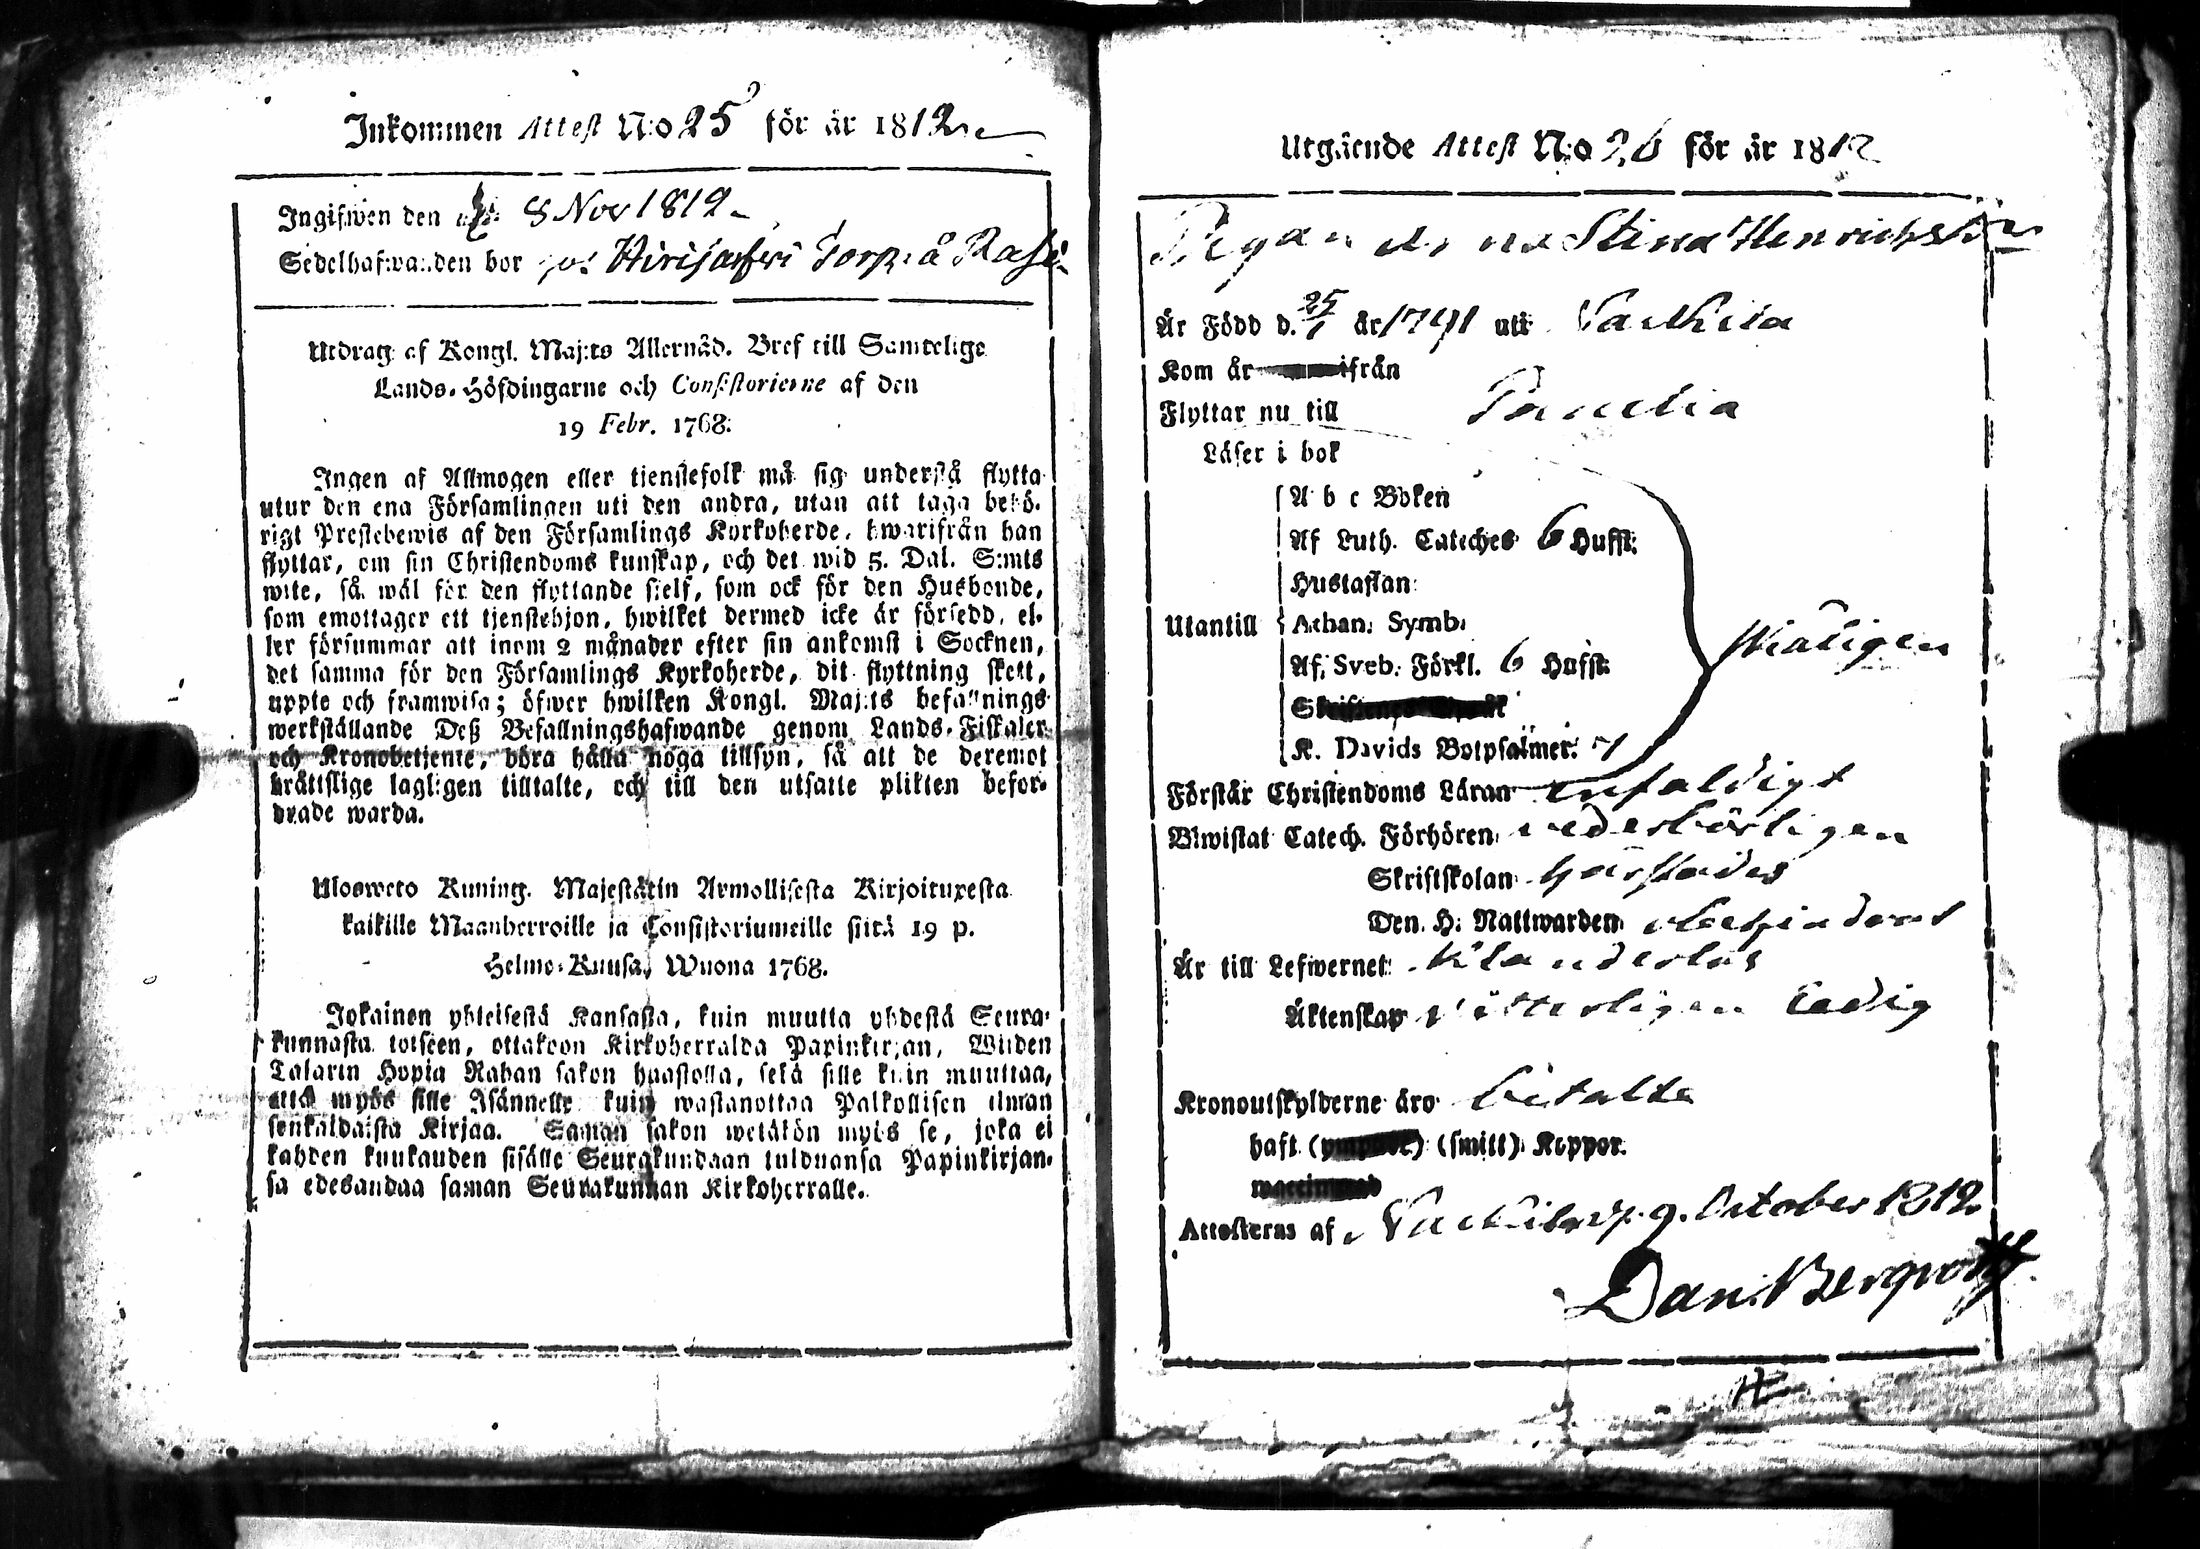 Inkommen Attest N:o 25 för är 1812
Ingifwen den 8 Nov 1812
Sedelhafwanden bor hos Torp å
Utdrag af Kongl. Maj:ts Allernåd. Bref till Samtelige
Lands-Höfdingarne och Consistorierne af den
19 Febr. 1768.
Ingen af Allmogen eller tienstefolk må sig understå flytta
utur den ena Församlingen uti den andra, utan att taga behö-
rigt Prestebewis af den Församlings Kyrkoherde, hwarifrån han
flyttar, om sin Christendoms kunskap, och det wid 5. Dal. S:mts
wite, så wäl för den flyttande sielf, som ock för den Husbonde,
som emottager ett tienstehjon, hwilket dermed icke är försedd, el-
ler försummar att inom 2 månader efter sin ankomst i Socknen,
det samma för den Församlings Kyrkoherde, dit flyttning skett,
uppte och framwisa; öfwer hwilken Kongl. Maj:ts befallnings
werkställande Deß Befallningshafwande genom Lands-Fiskaler
och Kronobetjente, böra hålla noga tillsyn, så att de deremot
bråttslige lagligen tilltalte, och till den utsatte plikten befor-
drade warda.
Ulosweto Kuning. Majestätin Armollisesta Kirjoituxesta
kaikille Maanherroille ja Consistoriumeille siitä 19 p.
Helme-Kuusa, Wuona 1768.
Jokainen yhteisestä Kansasta, kuin muutta yhdestä Seura-
kunnasta toiseen, ottakoon Kirkoherralda Papinkirjan, Wiiden
Talarin Hopia Rahan sakon haastolla, sekä sille kuin muuttaa,
että myös sille Isännelle kuin wastanottaa Palkollisen ilman
senkaldaista Kirjaa. Saman sakon wetäkön myös se, joka ei
kahden kuukauden sisälle Seurakundaan tulduansa Papinkirjan-
sa edesandaa saman Seurakunnan Kirkoherralle.
Utgäende Attest N:o 26 för är 1812
Pigan Anna Stina Henrichsdr
Är Född d. 25/1 är 1791 uti Vachila
Kom är ifrän
Flyttar nu till Panelia
Läser i bok
A b c Boken
Af Luth. Cateches 6 Hufst.
Hustaflan:
Utantill Athan. Symb.
Af. Sveb. Förkl. 6 Hufst.
K. Davids Botpsalmer. 7
Förstår Christendoms Läran enfaldigt
Biwistat Catech. Förhören wederbörligen
Skriftskolan
Den. H. Nattwarden
Är till Lefwernet klanderlös
Äktenskap ledig
Kronoutskylderne äro betalte
haft (smitt) Koppor.
Attesteras af 9. October 1812
Dan. Bergroth